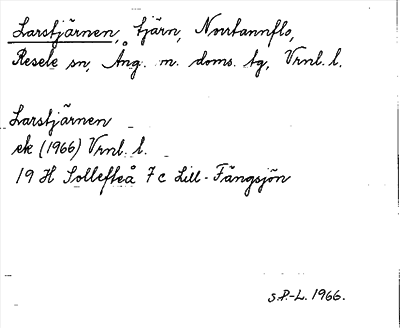 Larstjärnen, tjärn, Norrtannflo,
Resele sn, Ång. m. doms. tg, Vrnl. l.
Larstjärnen
ek (1966) Vrnl. l.
19 H Sollefteå 7 c Lill-Fängsjön
S.P.-L. 1966.